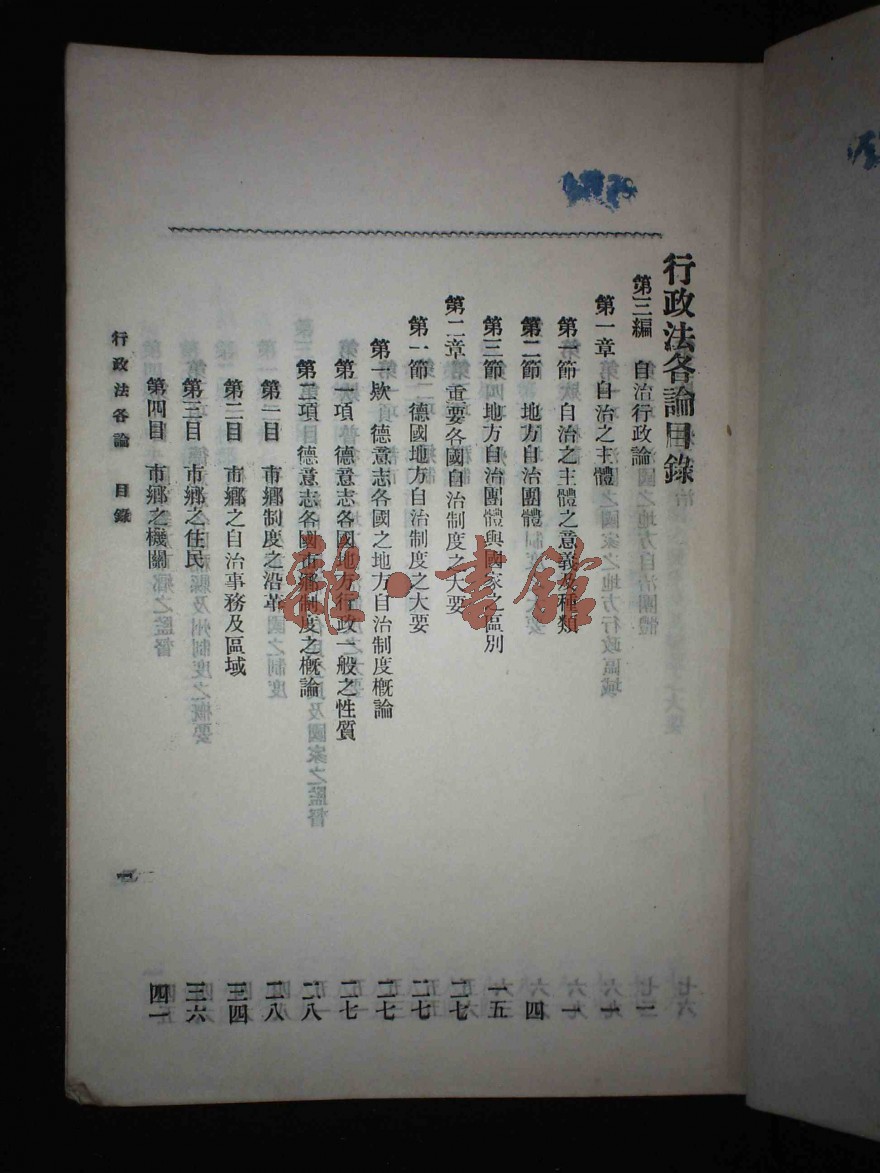 行政法各論目錄
第三編 自治行政論 一
第一章 自治之主體 一
第一節 自治之主體之意義及種類 一
第二節 地方自治團體 四
第三節 地方自治團體與國家之區別 一五
第二章 重要各國自治制度之大要 二七
第一節 德國地方自治制度之大要 二七
第一欵 德意志各國之地方自治制度概論 二七
第一項 德意志各國地方行政一般之性質 二七
第二項 德意志各國市鄉制度之概論 二八
第一目 市鄉制度之沿革 二八
第二目 市鄉之自治事務及區域 三四
第三目 市鄉之住民 三六
第四目 市鄉之機關 四一
行政法各論 目錄
雜·書館